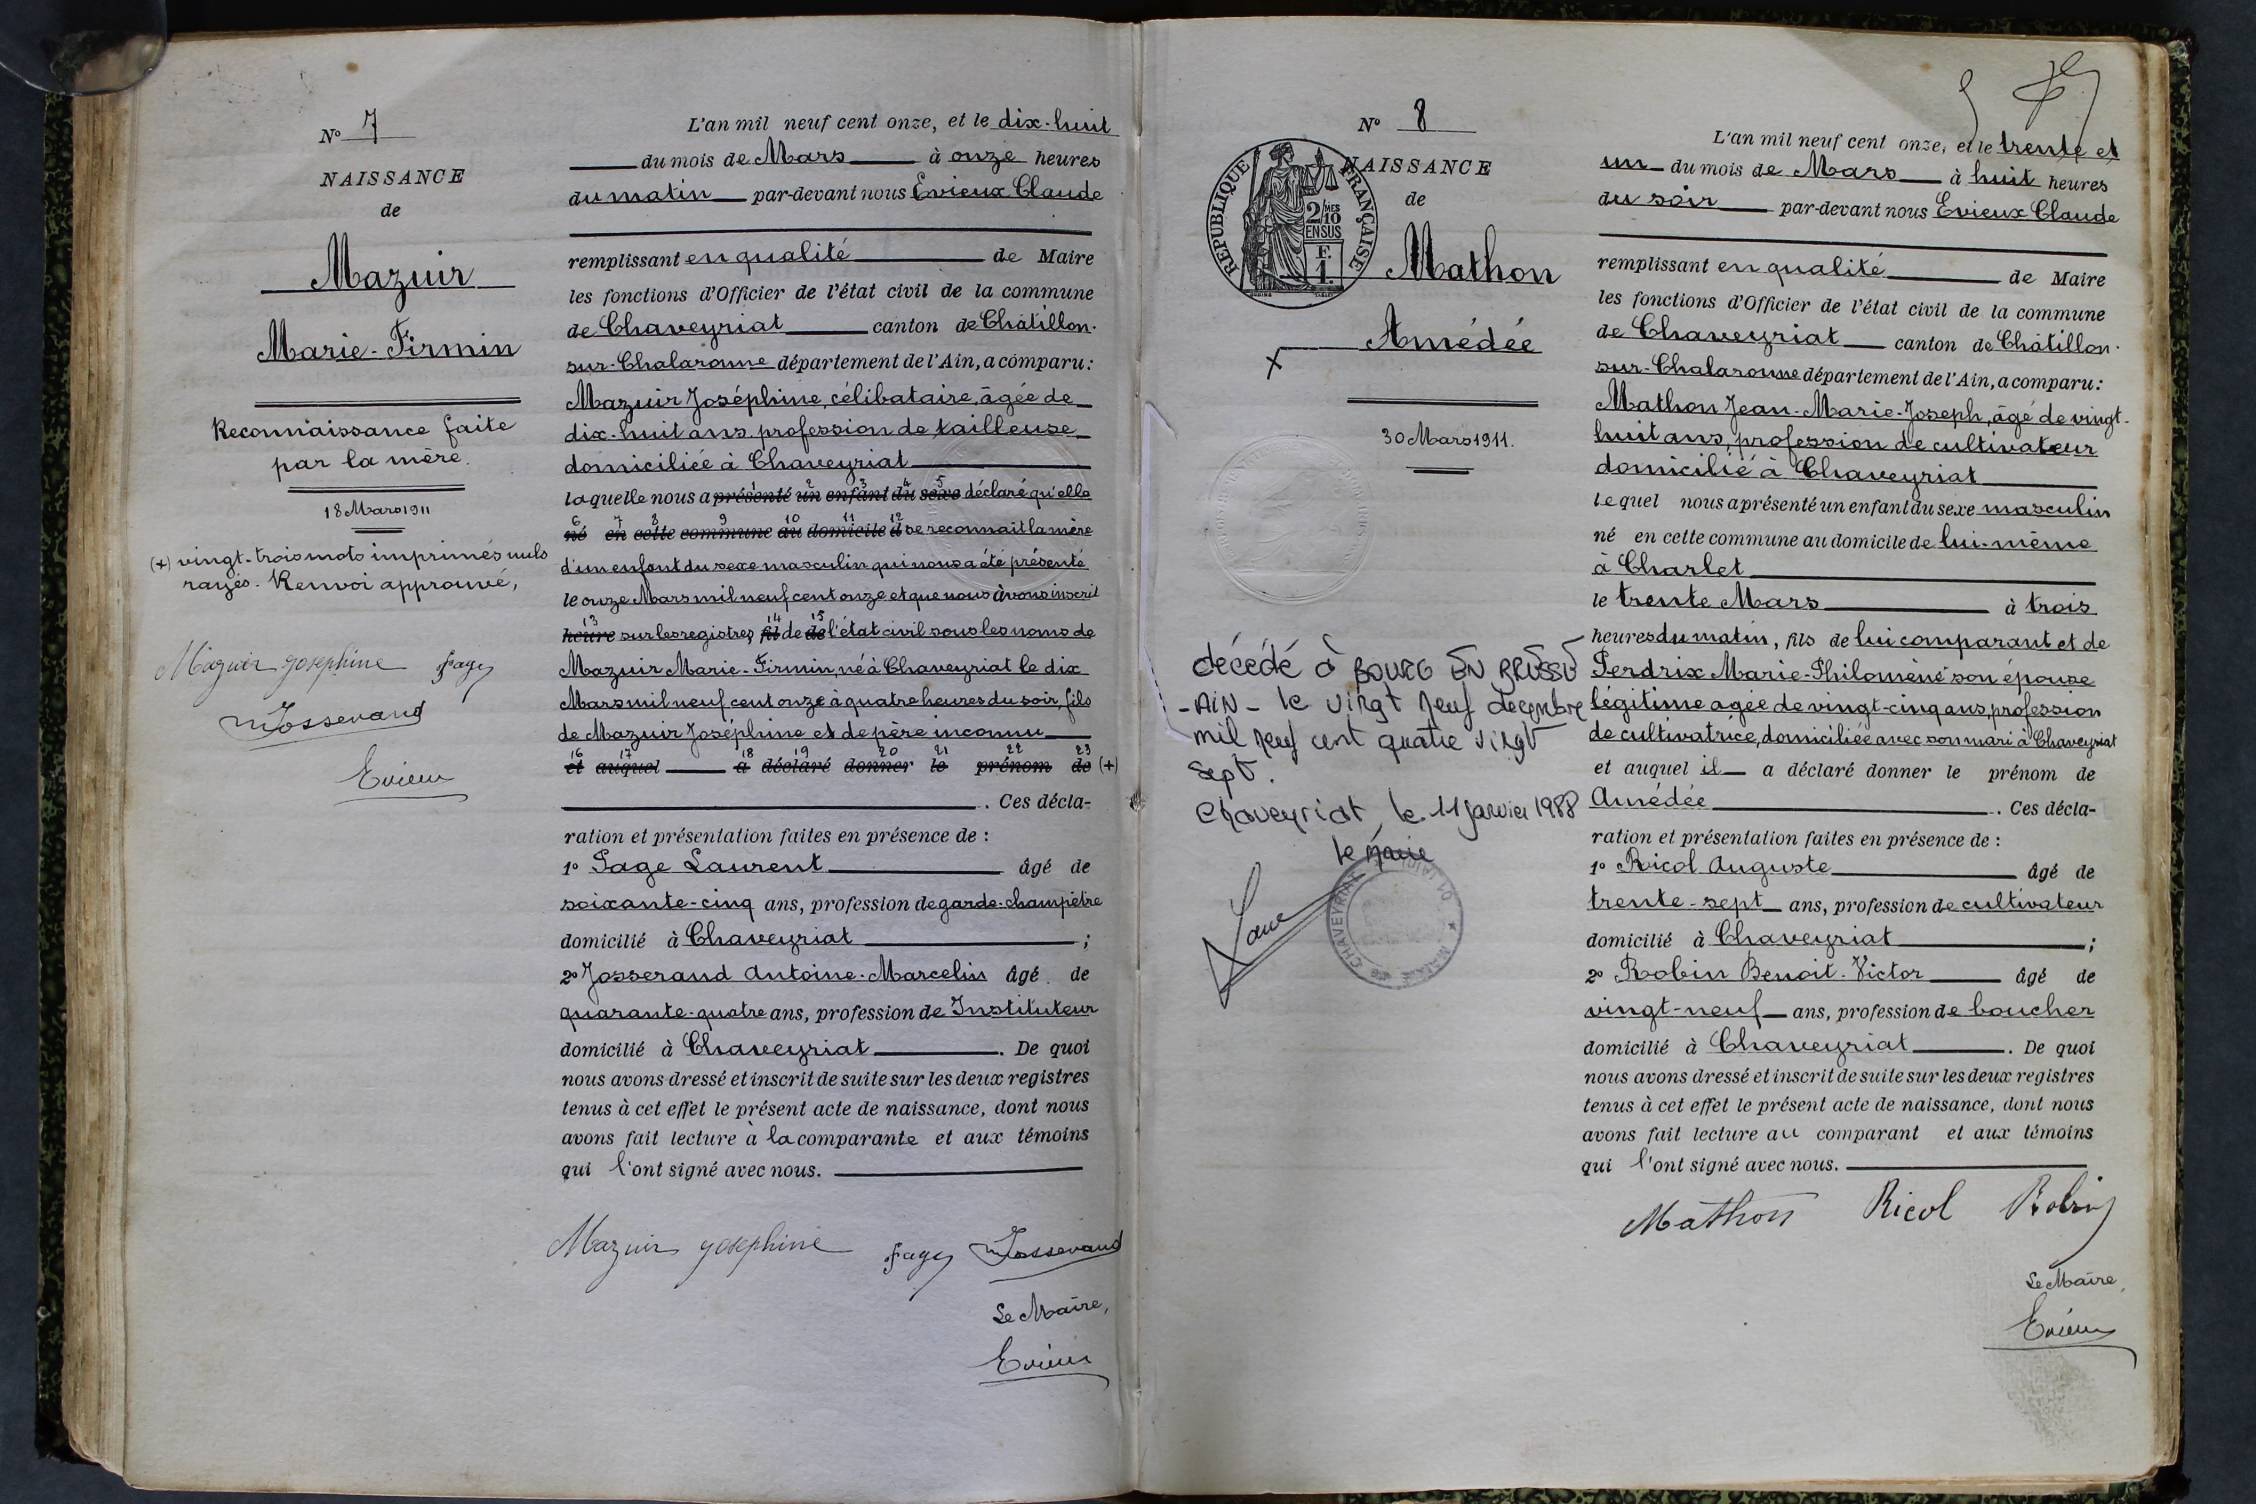 N° 7
NAISSANCE
de
Mazuir
Marie-Firmin
Reconnaissance faite
par la mère.
18 Mars 1911
(+) vingt-trois mots imprimés nuls
rayés. Renvoi approuvé,
Mazuir Josephine Page
Josserand
Evieux
L'an mil neuf cent onze, et le dix-huit
du mois de Mars à onze heures
du matin par-devant nous Evieux Claude
remplissant en qualité de Maire
les fonctions d'Officier de l'état civil de la commune
de Chaveyriat canton de Châtillon-
sur-Chalaronne département de l'Ain, a comparu:
Mazuir Joséphine, célibataire, âgée de
dix-huit ans, profession de tailleuse
domiciliée à Chaveyriat
laquelle nous a présenté un enfant du sexe déclaré qu'elle
1 2 3 4 5
né en cette commune au domicile d se reconnait la mère
6 7 8 9 10 11 12
d'un enfant du sexe masculin qui nous a été présenté
le onze Mars mil neuf cent onze et que nous avons inscrit
heure sur les registres fil de de l'état civil sous les noms de
13 14 15
Mazuir Marie-Firmin, né à Chaveyriat le dix
Mars mil neuf cent onze à quatre heures du soir, fils
de Mazuir Joséphine et de père inconnu
16 17 18 19 20 21 22 23
et auquel a déclaré donner le prénom de (+)
. Ces décla-
ration et présentation faites en présence de :
1° Page Laurent âgé de
soixante-cinq ans, profession de garde-champêtre
domicilié à Chaveyriat ;
2° Josserand Antoine-Marcelin âgé de
quarante-quatre ans, profession de Instituteur
domicilié à Chaveyriat . De quoi
nous avons dressé et inscrit de suite sur les deux registres
tenus à cet effet le présent acte de naissance, dont nous
avons fait lecture à la comparante et aux témoins
qui l'ont signé avec nous.
Mazuir Josephine Page Josserand
Le Maire,
Evieux
N° 8
NAISSANCE
de
RÉPUBLIQUE FRANÇAISE
2/10
MES
EN SUS
F.
1.
Mathon
Amédée
X
30 Mars 1911.
décédé à BOURG EN BRESSE
- AIN - le vingt neuf décembre
mil neuf cent quatre vingt
sept.
Chaveyriat, le 11 janvier 1988
le maire
MAIRIE DE CHAVEYRIAT
L'an mil neuf cent onze, et le trente et
un du mois de Mars à huit heures
du soir par-devant nous Evieux Claude
remplissant en qualité de Maire
les fonctions d'Officier de l'état civil de la commune
de Chaveyriat canton de Châtillon-
sur-Chalaronne département de l'Ain, a comparu:
Mathon Jean-Marie-Joseph, âgé de vingt-
huit ans, profession de cultivateur
domicilié à Chaveyriat
lequel nous a présenté un enfant du sexe masculin
né en cette commune au domicile de lui-même
à Charlet
le trente Mars à trois
heures du matin, fils de lui comparant et de
Perdrix Marie-Philomène son épouse
légitime agée de vingt-cinq ans, profession
de cultivatrice, domiciliée avec son mari à Chaveyriat
et auquel il a déclaré donner le prénom de
Amédée . Ces décla-
ration et présentation faites en présence de :
1° Ricol Auguste âgé de
trente-sept ans, profession de cultivateur
domicilié à Chaveyriat ;
2° Robin Benoit-Victor âgé de
vingt-neuf ans, profession de boucher
domicilié à Chaveyriat . De quoi
nous avons dressé et inscrit de suite sur les deux registres
tenus à cet effet le présent acte de naissance, dont nous
avons fait lecture au comparant et aux témoins
qui l'ont signé avec nous.
Mathon Ricol Robin
Le Maire,
Evieux